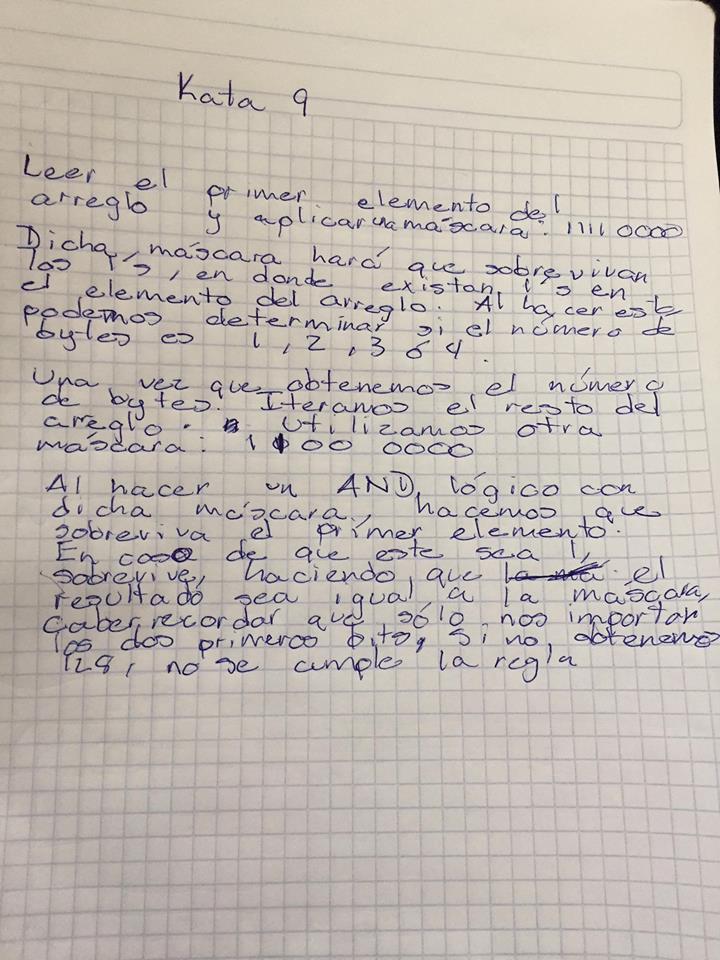 Kata 9
Leer el primer elemento del
arreglo y aplicar una máscara: 1111 0000
Dicha máscara hará que sobrevivan
los 1's, en donde existan 1's en
el elemento del arreglo. Al hacer este
podemos determinar si el número de
bytes es 1, 2, 3 ó 4.
Una vez que obtenemos el número
de bytes. Iteramos el resto del
arreglo. Utilizamos otra
máscara: 1100 0000
Al hacer un AND lógico con
dicha máscara, hacemos que
sobreviva el primer elemento.
En caso de que este sea 1,
sobrevive, haciendo que el
resultado sea igual a la máscara,
Caber recordar que sólo nos importan
los dos primeros bits, si no obtenemos
128, no se cumple la regla